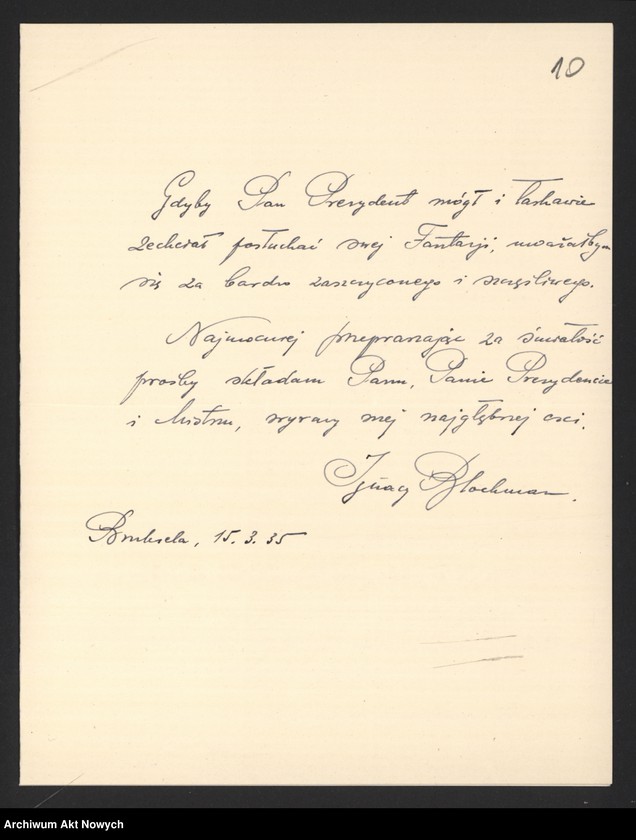 10
Gdyby Pan Prezydent mógł i łaskawie
zechciał posłuchać swej Fantazji, uważałbym
się za bardzo zaszczyconego i szczęśliwego.
Najmocniej przepraszając za śmiałość
prośby składam Panu, Panie Prezydencie
i Mistrzu, wyrazy mej najgłębszej czci.
Ignacy Blochman.
Bruksela, 15. 3. 35
Archiwum Akt Nowych